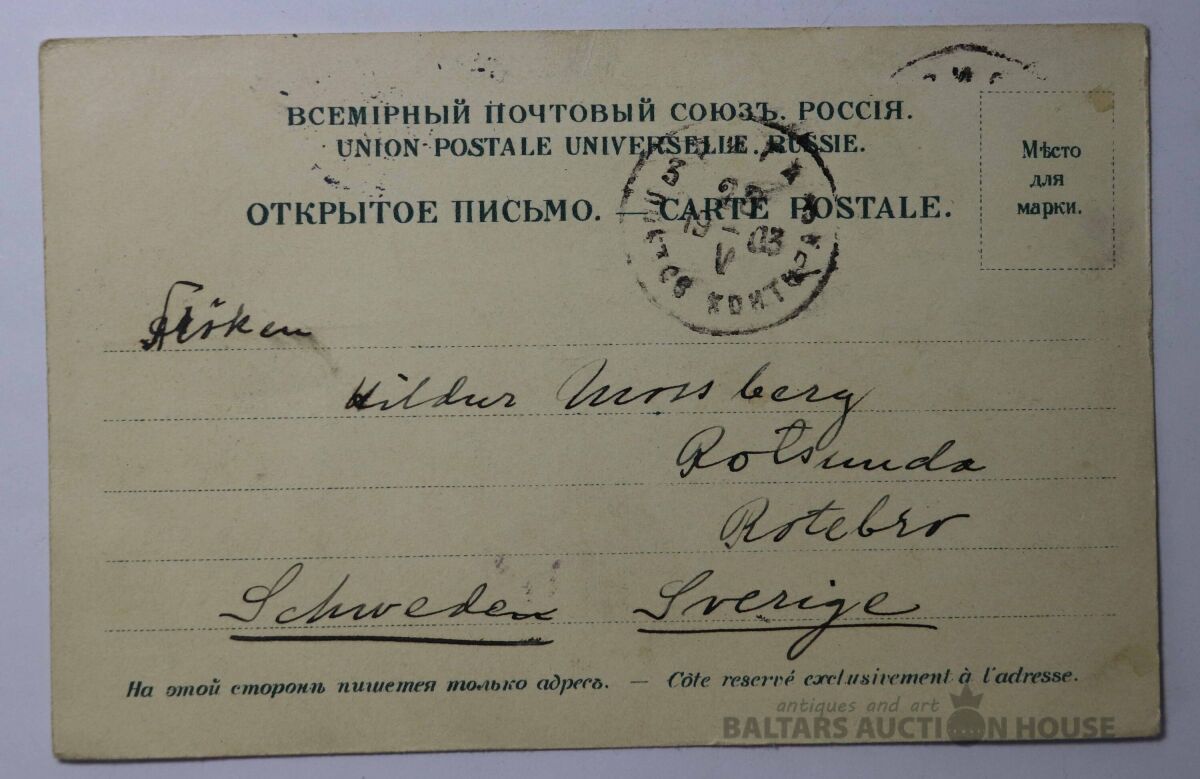 ВСЕМІРНЫЙ ПОЧТОВЫЙ СОЮЗЪ. РОССІЯ.
UNION POSTALE UNIVERSELLE. RUSSIE.
ОТКРЫТОЕ ПИСЬМО. — CARTE POSTALE.
Мѣсто
для
марки.
РИГА
19 03
V
Fröken
Hildur Mossberg
Rotsunda
Rotebro
Schweden Sverige
На этой сторонѣ пишется только адресъ. — Côte reservé exclusivement à l'adresse.
antiques and art
BALTARS AUCTION HOUSE